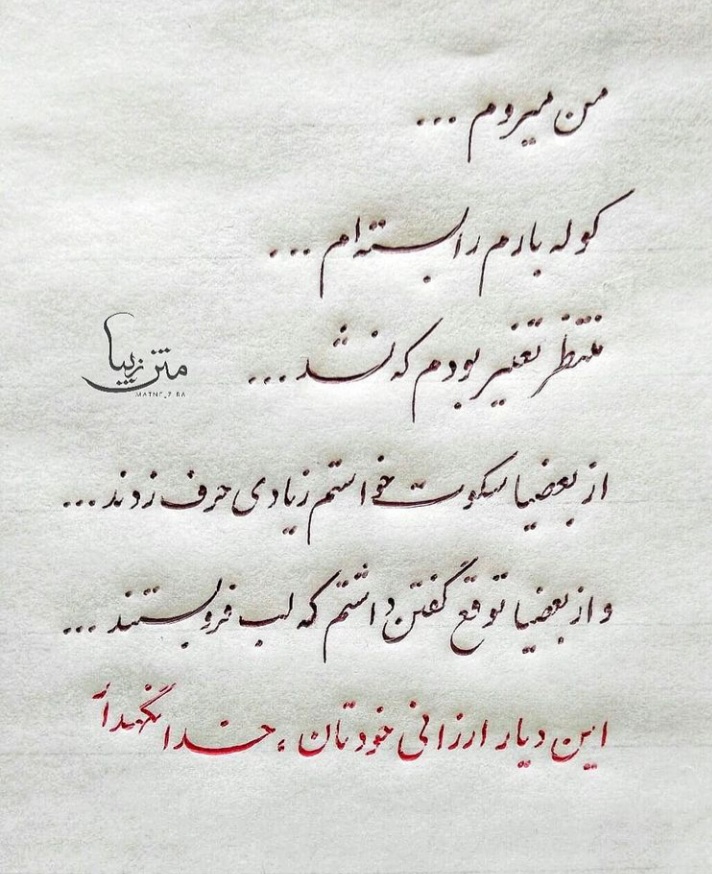 من میروم ...
کوله بارم را بسته‌ام ...
منتظر تغییر بودم که نشد ...
متن زیبا
MATNE_ZIBA
از بعضیا سکوت خواستم زیادی حرف زدند ...
و از بعضیا توقع گفتن داشتم که لب فروبستند ...
این دیار ارزانی خودتان، خدانگهدار